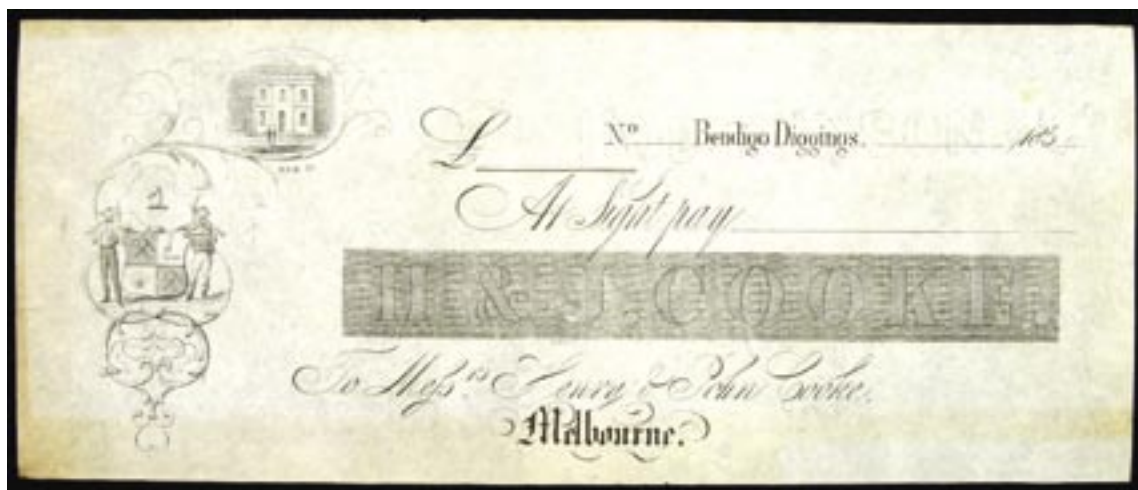 £ No Bendigo Diggings. 185
At Sight pay
H & J. COOKE.
To Messrs Henry & John Cooke.
Melbourne.